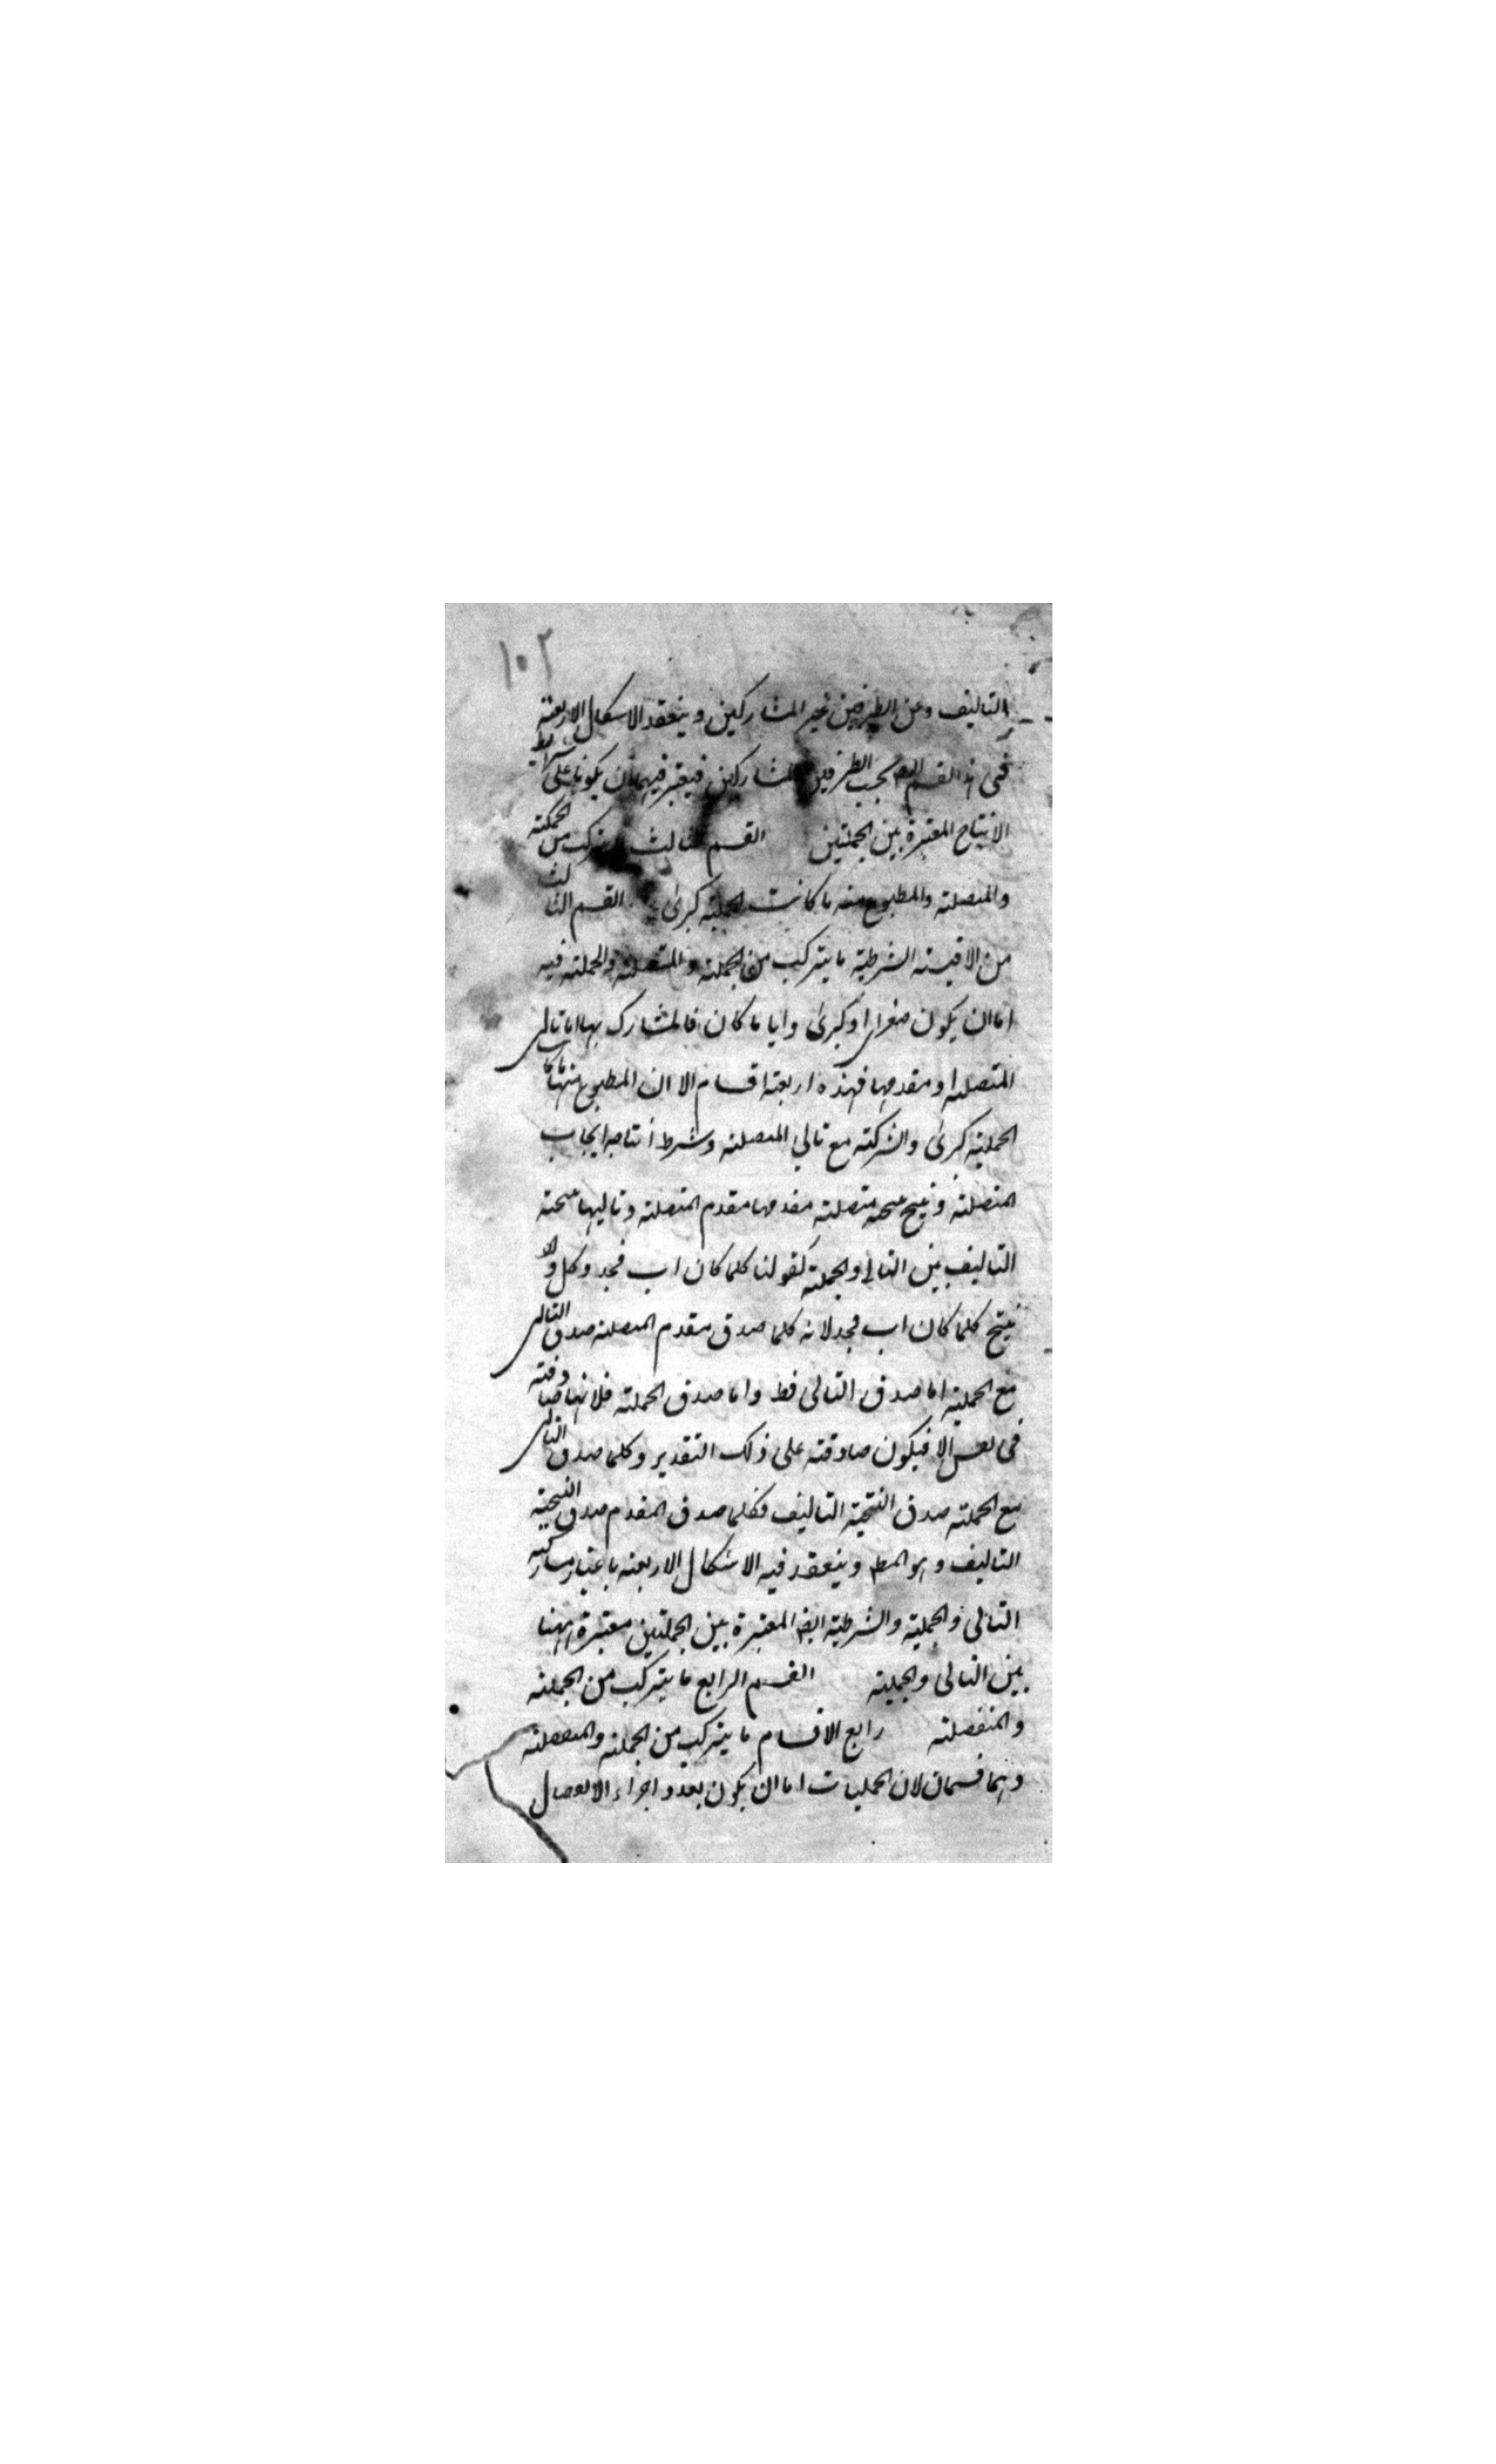 ١٠٢
التاليف وعن الطرفين غير المشاركين وينعقد الاشكال الاربعة
فى هذا القسم بحسب الطرفين المشاركين فيعتبر فيهما ان يكونا على شرايط
الانتاج المعتبرة بين الحمليتين القسم الثالث ما يتركب من الحملية
والمتصلة والمطبوع منه ما كانت الحملية كبرى القسم الثالث
من الاقيسة الشرطية ما يتركب من الحملية والمتصلة والحملية فيه
اما ان يكون صغرى او كبرى وايا ما كان فالمشارك بها اما تالى
المتصلة او مقدمها فهذه اربعة اقسام الا ان المطبوع منها ما كانت
الحملية كبرى والشركة مع تالي المتصلة وشرط انتاجه ايجاب
المتصلة ونتيجته متصلة مقدمها مقدم المتصلة وتاليها نتيجة
التاليف بين التالي والحملية كقولنا كلما كان اب فجد وكل
ينتج كلما كان اب فجه لانه كلما صدق مقدم المتصلة صدق التالى
مع الحملية اما صدق التالى فظ واما صدق الحملية فلانها صادقة
فى نفس الا فيكون صادقة على ذلك التقدير وكلما صدق التالى
مع الحملية صدق النتيجة التاليف فكلما صدق المقدم صدق النتيجة
التاليف وهو المط وينعقد فيه الاشكال الاربعة باعتبار مشاركة
التالى والحملية والشرطية ايضا المعتبرة بين الحمليتين معتبرة ههنا
بين التالى والحملية القسم الرابع ما يتركب من الحملية
والمنفصلة رابع الاقسام ما يتركب من الحملية والمنفصلة
وهما قسمان لان الحمليات اما ان يكون بعدد اجزاء الانفصال